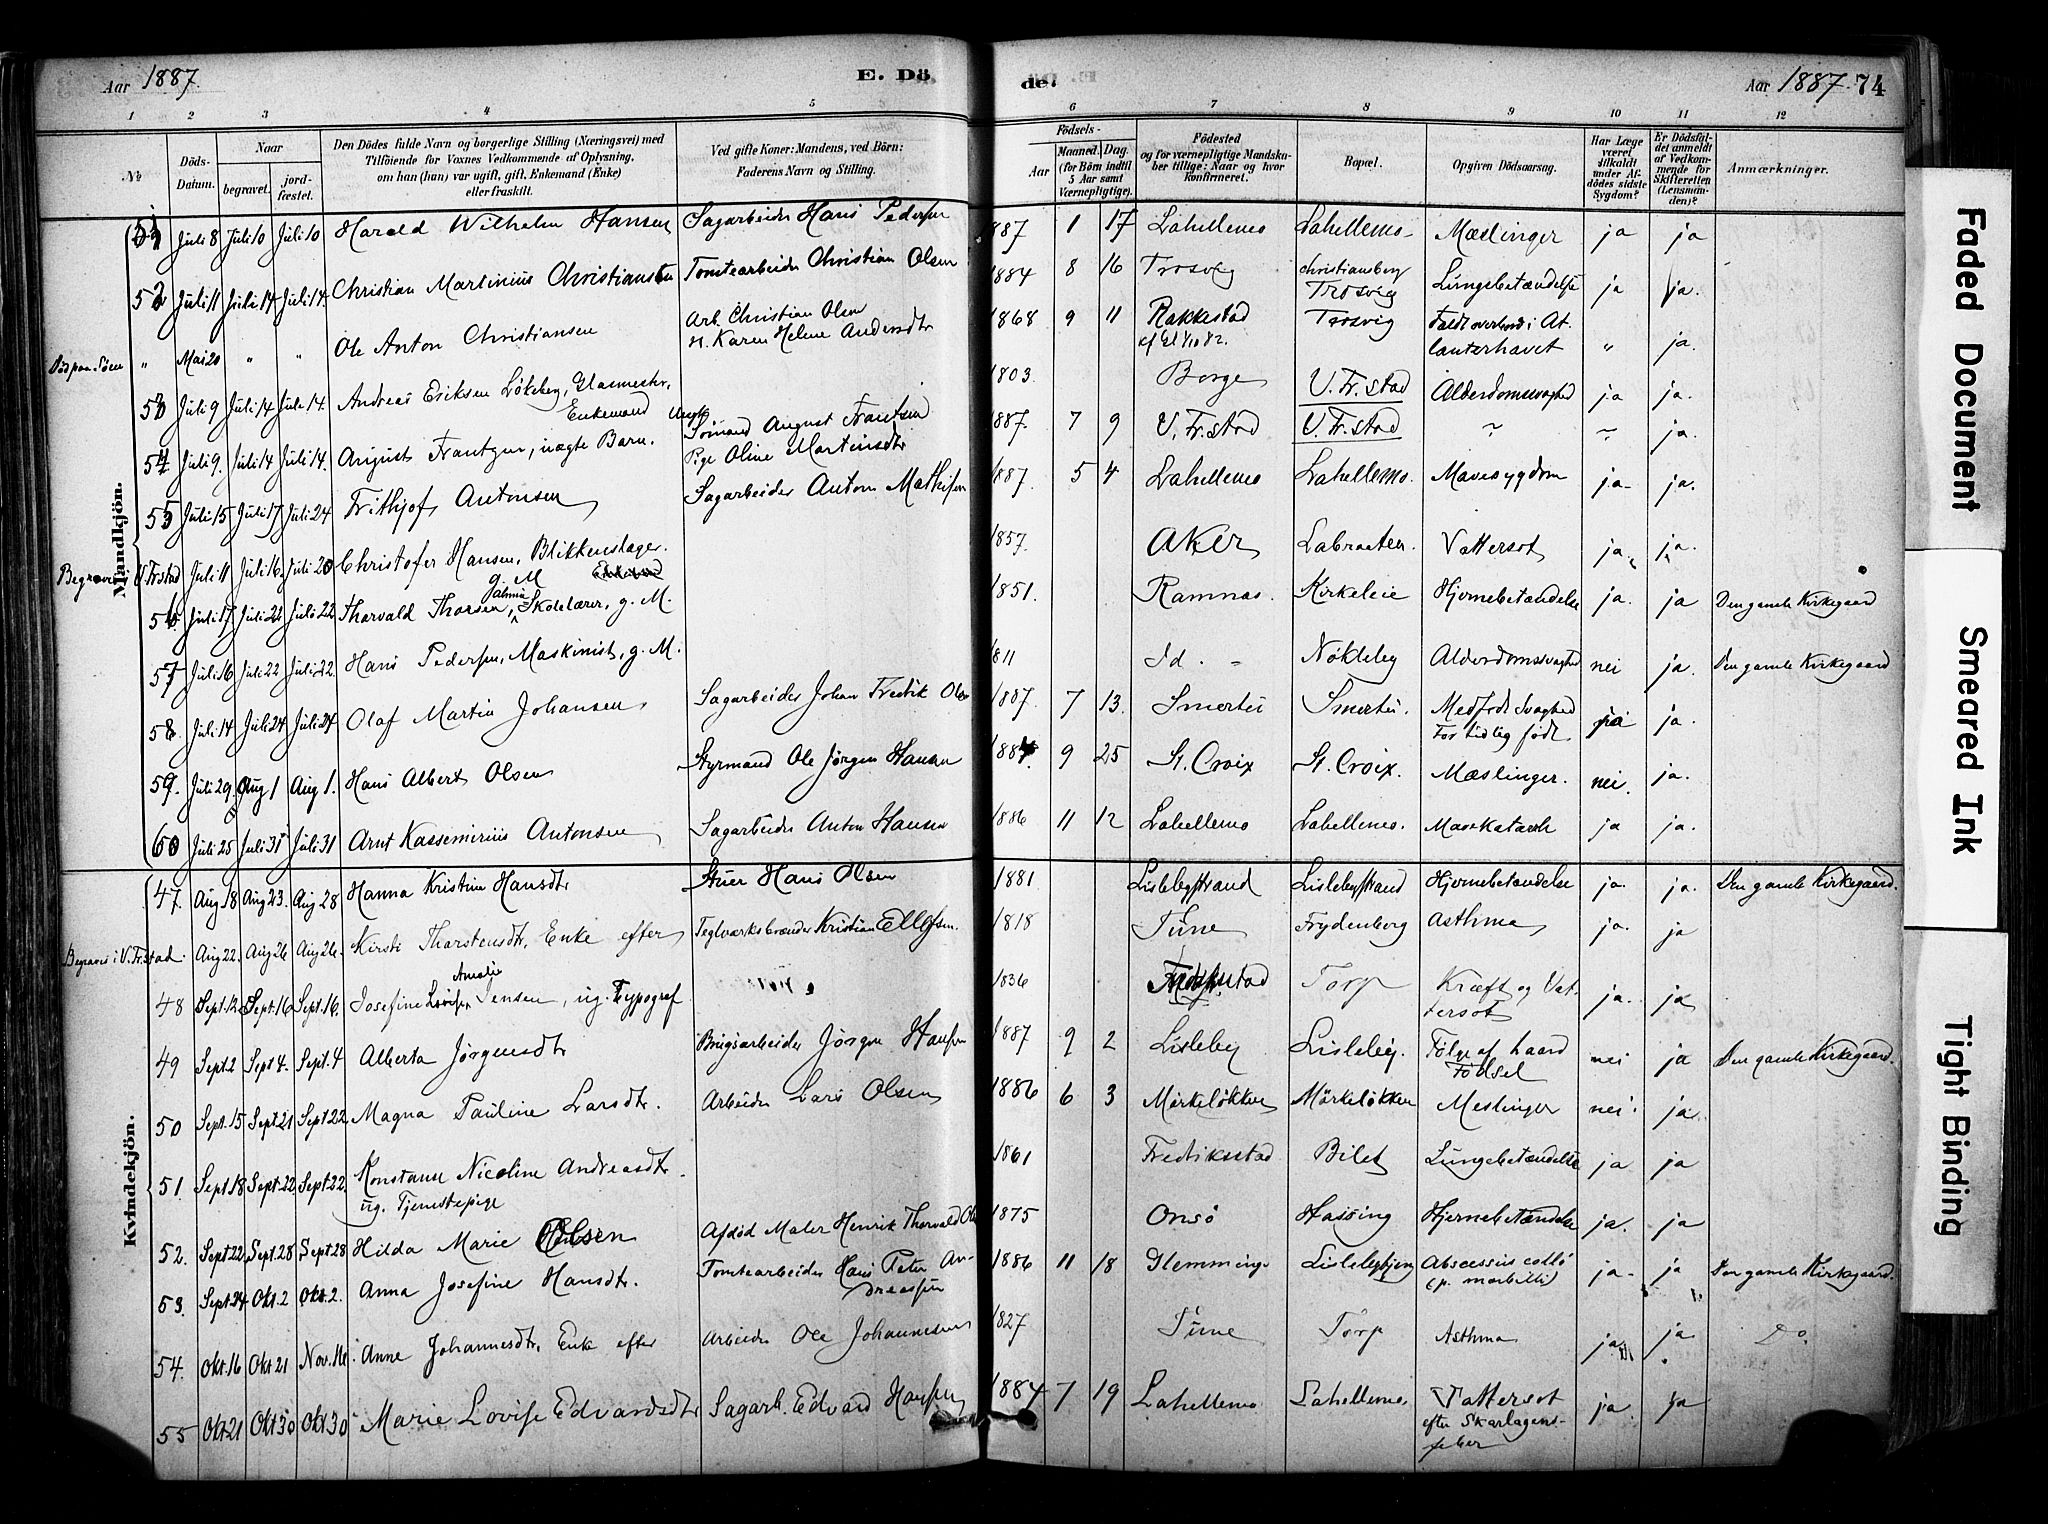 Aar 1887. E. Dö de. Aar 1887. 74
1 2 3 4 5 6 7 8 9 10 11 12
No Döds-Datum. Naar begravet. jord-fæstet. Den Dödes fulde Navn og borgerlige Stilling (Næringsvei) med Tilföiende for Voxnes Vedkommende af Oplysning, om han (hun) var ugift, gift, Enkemand (Enke) eller fraskilt. Ved gifte Koner: Mandens, ved Börn: Faderens Navn og Stilling. Födsels- Aar Maaned. Dag. (for Börn indtil 5 Aar samt Værnepligtige). Födested og for værnepligtige Mandska-ber tillige: Naar og hvor konfirmeret. Bopæl. Opgiven Dödsaarsag. Har Læge været tilkaldt under Af-dödes sidste Sygdom? Er Dödsfal-det anmeldt af Vedkom-mende for Skifteretten (Lensman-den)? Anmærkninger.
Mandkjön.
51 Juli 8 Juli 10 Juli 10 Harald Wilhelm Hansen Sagarbeider Hans Pedersen 1887 1 17 Lahellemo Lahellemo Mæslinger ja ja
52 Juli 11 Juli 14 Juli 14. Christian Martinius Christiansen Tomtearbeider Christian Olsen 1884 8 16 Trosvig Christiansberg Trosvig Lungebetændelse ja ja.
Död paa Söen " Mai 20 " " Ole Anton Christiansen Arb. Christian Olsen H. Karen Helene Andersdtr 1868 9 11 Rakkestad Trosvig Faldt overbord i At-lanterhavet " ja.
53 Juli 9 Juli 14 Juli 14. Andreas Eriksen Lökeberg, Glasmester, Enkemand 1803. Borge V. Fr.stad Alderdomssvaghed ja ja.
54 Juli 9. Juli 14 Juli 14. August Frantzen, uægte Barn. Ungk. Sömand August Frantsen Pige Oline Martinsdtr 1887. 7 9 V. Fr.stad V. Fr.stad ~ ~ ja.
55 Juli 15 Juli 17 Juli 24 Frithjof Antonsen Sagarbeider Anton Mathisen 1887. 5 4 Lahellemo Lahellemo. Mavesygdom ja ja.
Begraven i V. Frstad Juli 11 Juli 16 Juli 20 Christofer Hansen, Blikkenslager. g. M 1857. Aker Labraaten. Vattersot ja ja.
56. Juli 17 Juli 22 Juli 22 Thorvald Thorsen, Skolelærer, g. M. 1851. Ramnæs. Kirkeleie Hjernebetændelse ja. ja Den gamle Kirkegaard
57 Juli 16 Juli 22 Juli 22. Hans Pedersen, Maskinist, g. M. 1811 Id. Nökleby Alderdomssvaghed nei ja. Den gamle Kirkegaard
58. Juli 14 Juli 24 Juli 24 Olaf Martin Johansen Sagarbeider Johan Fredrik Olsen 1887 7 13. Smertu Smertu. Medfödt Svaghed For tidlig födt. ja ja.
59. Juli 29. Aug 1 Aug 1. Hans Albert Olsen Styrmand Ole Jörgen Hansen 1884. 9 25 St. Croix St. Croix. Mæslinger. nei. ja.
60 Juli 25 Juli 31 Juli 31 Arnt Kassemirius Antonsen Sagarbeider Anton Hansen 1886 11 12 Lahellemo Lahellemo. Mavekatarrh ja ja.
Kvindekjön.
47. Aug 18 Aug 23. Aug 28 Hanna Kristine Hansdtr Stuer Hans Olsen 1881 Lislebystrand Lislebystrand Hjernebetændelse ja. ja. Den gamle Kirkegaard.
Begraves i V. Fr.stad. Aug 22. Aug 26 Aug 26. Kirsti Thorstensdtr, Enke efter Teglværksbrænder Kristian Ellefsen. 1818 Tune Frydenberg Asthma ja. ja
48 Sept. 12 Sept. 16 Sept. 16. Josefine Amalie Jensen, ug. Typograf 1836 Torp Kræft og Vat-tersot ja. ja
49 Sept 2 Sept 4. Sept. 4 Alberta Jörgensdtr Brugsarbeider Jörgen Hansen 1887 9 2 Lisleby Lisleby. Fölge af haard Födsel nei ja Den gamle Kirkegaard.
50 Sept. 15 Sept 21 Sept 22 Magna Pauline Larsdtr. Arbeider Lars Olsen 1886 6 3 Mörkelökken Mörkelökken Meslinger nei. ja.
51 Sept 18 Sept 22 Sept 22. Konstanse Nicoline Andreasdtr. ug. Tjenestepige 1861 Fredriksstad Bilet Lungebetændelse ja ja
52. Sept 22 Sept. 28 Sept 28 Hilda Marie Olsen Afdöd Maler Henrik Thorvald Olsen 1875 Onsö Hassing Hjernebetændelse ja. ja
53. Sept 24 Okt. 2 Okt. 2. Anna Josefine Hansdtr. Tomtearbeider Hans Peter An-dreassen 1886 11 18 Glemminge Lislebybjerg Abscessus colli (p. morbilli) ja. ja Den gamle Kirkegaard.
54. Okt. 16 Okt 21 Nov. 14 Anne Johannesdtr, Enke efter Arbeider Ole Johannesen 1827 Tune Torp Asthma ja ja Do.
55 Okt 21 Okt 30 Okt 30 Marie Lovise Edvardsdtr Sagarb. Edvard Hansen 1884 7 19 Lahellemo Lahellemo. Vattersot efter Skarlagens-feber ja. ja
Faded Document
Smeared Ink
Tight Binding